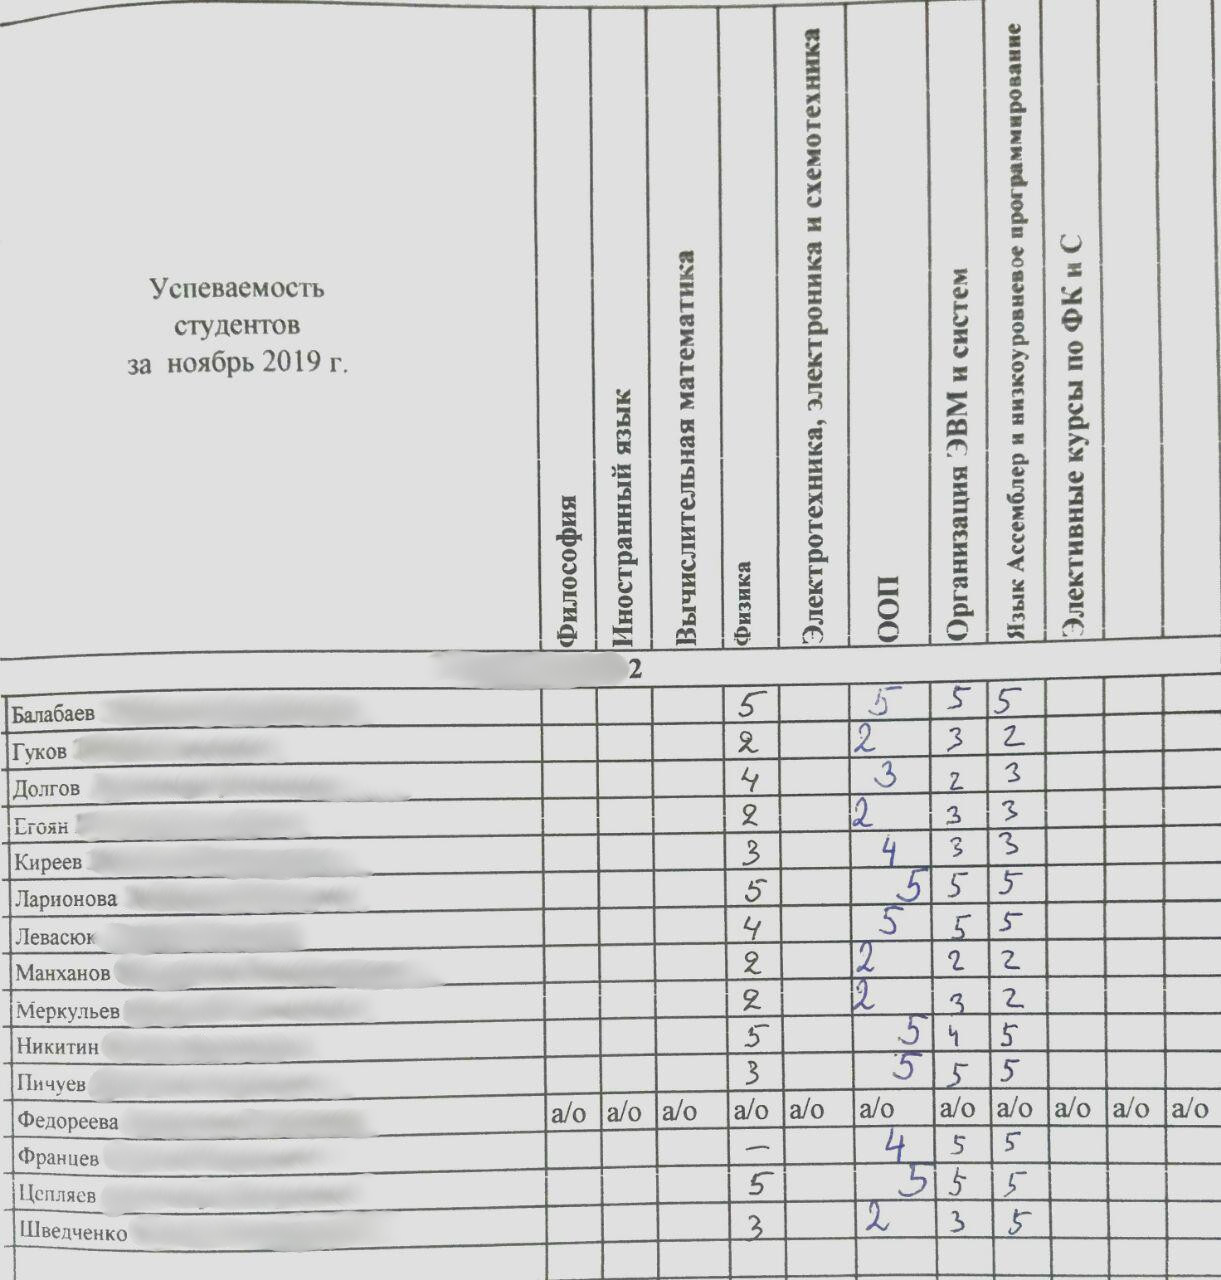 Успеваемость
студентов
за ноябрь 2019 г.
Философия
Иностранный язык
Вычислительная математика
Физика
Электротехника, электроника и схемотехника
ООП
Организация ЭВМ и систем
Язык Ассемблер и низкоуровневое программирование
Элективные курсы по ФК и С
2
Балабаев 5 5 5 5
Гуков 2 2 3 2
Долгов 4 3 2 3
Егоян 2 2 3 3
Киреев 3 4 3 3
Ларионова 5 5 5 5
Левасюк 4 5 5 5
Манханов 2 2 2 2
Меркульев 2 2 3 2
Никитин 5 5 4 5
Пичуев 3 5 5 5
Федореева а/о а/о а/о а/о а/о а/о а/о а/о а/о а/о а/о
Францев – 4 5 5
Цепляев 5 5 5 5
Шведченко 3 2 3 5